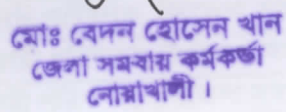 মোঃ বেদন হোসেন খান
জেলা সমবায় কর্মকর্তা
নোয়াখালী ।